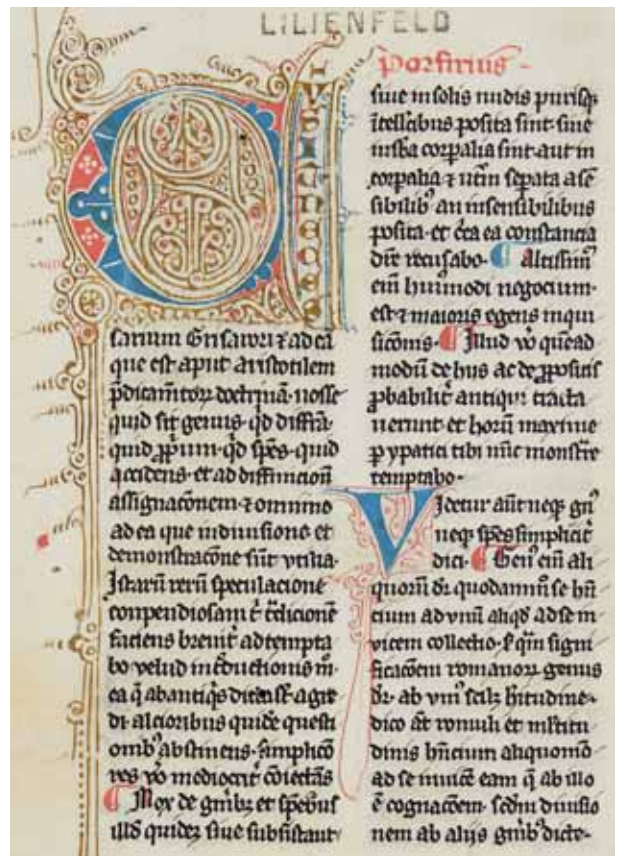 LILIENFELD
Porfirius
CŪ SIT NECES
sarium Grisarori ⁊ ad ea
que est aput aristotilem
p̄dicam̄torꝝ doctrinā· nosse
quid sit genus· qd̄ diffr̄a·
quid ꝓp̄um· qd̄ spēs· quid
accidens· et ad diffincionū
assignac̄onem· ⁊ omnino
ad ea que in diuisione et
demonstrac̄one sūt vtilia·
Istarū rerū speculacione
conpendiosam t̄ t̄dicionē
faciens breuit̄ ad tempta
bo velud int̄ductionis m̄·
ea q̄ ab antiq̄s dicta sūt agre
di· alcioribus quidē questi
onibꝰ abstinens· simplicō
res v̊o mediocrit̄ cōiectās
Mox de gn̄ibꝫ et spēbus
illd̄ quidē siue subsistant
siue in solis nudis purisqꝫ
ītellc̄ibus posita sint· siue
ni s̄ba corp̄alia sint· aut in
corp̄alia ⁊ ut̄m sep̄ata a sē
sibilibꝰ an insensibilibus
posita· et c̄ca ea constancia
dic̄e recusabo· Altissimū
eīn huiusmodi negocium·
est ⁊ maioris egens inqui
sicōnis· Illud v̊o quēad
modū de hiis ac de ꝓpositis
ꝓbabilit̄ antiqui tracta
uerunt· et horū maxime
ꝑypatici tibi nūc monstr̄e
temptabo·
Videtur aūt neqꝫ gnꝰ
neqꝫ spēs simplicit̄
dici· Genꝰ eīn ali
quorū dr̄· quodammō se hn̄
cium ad vnū aliqd̄ ad se in
vicem collectio· s̄ qm̄ signi
ficac̄oem romanorꝝ genus
dr̄· ab vniꝰ scilꝫ h̄itudine·
dico āt romuli et m̄ltitu
dinis hn̄cium aliquomō
ad se inuicē eam q̄ ab illo
ē cognac̄oem· scdm̄ diuisio
nem ab aliis gn̄ibꝰ dicte·